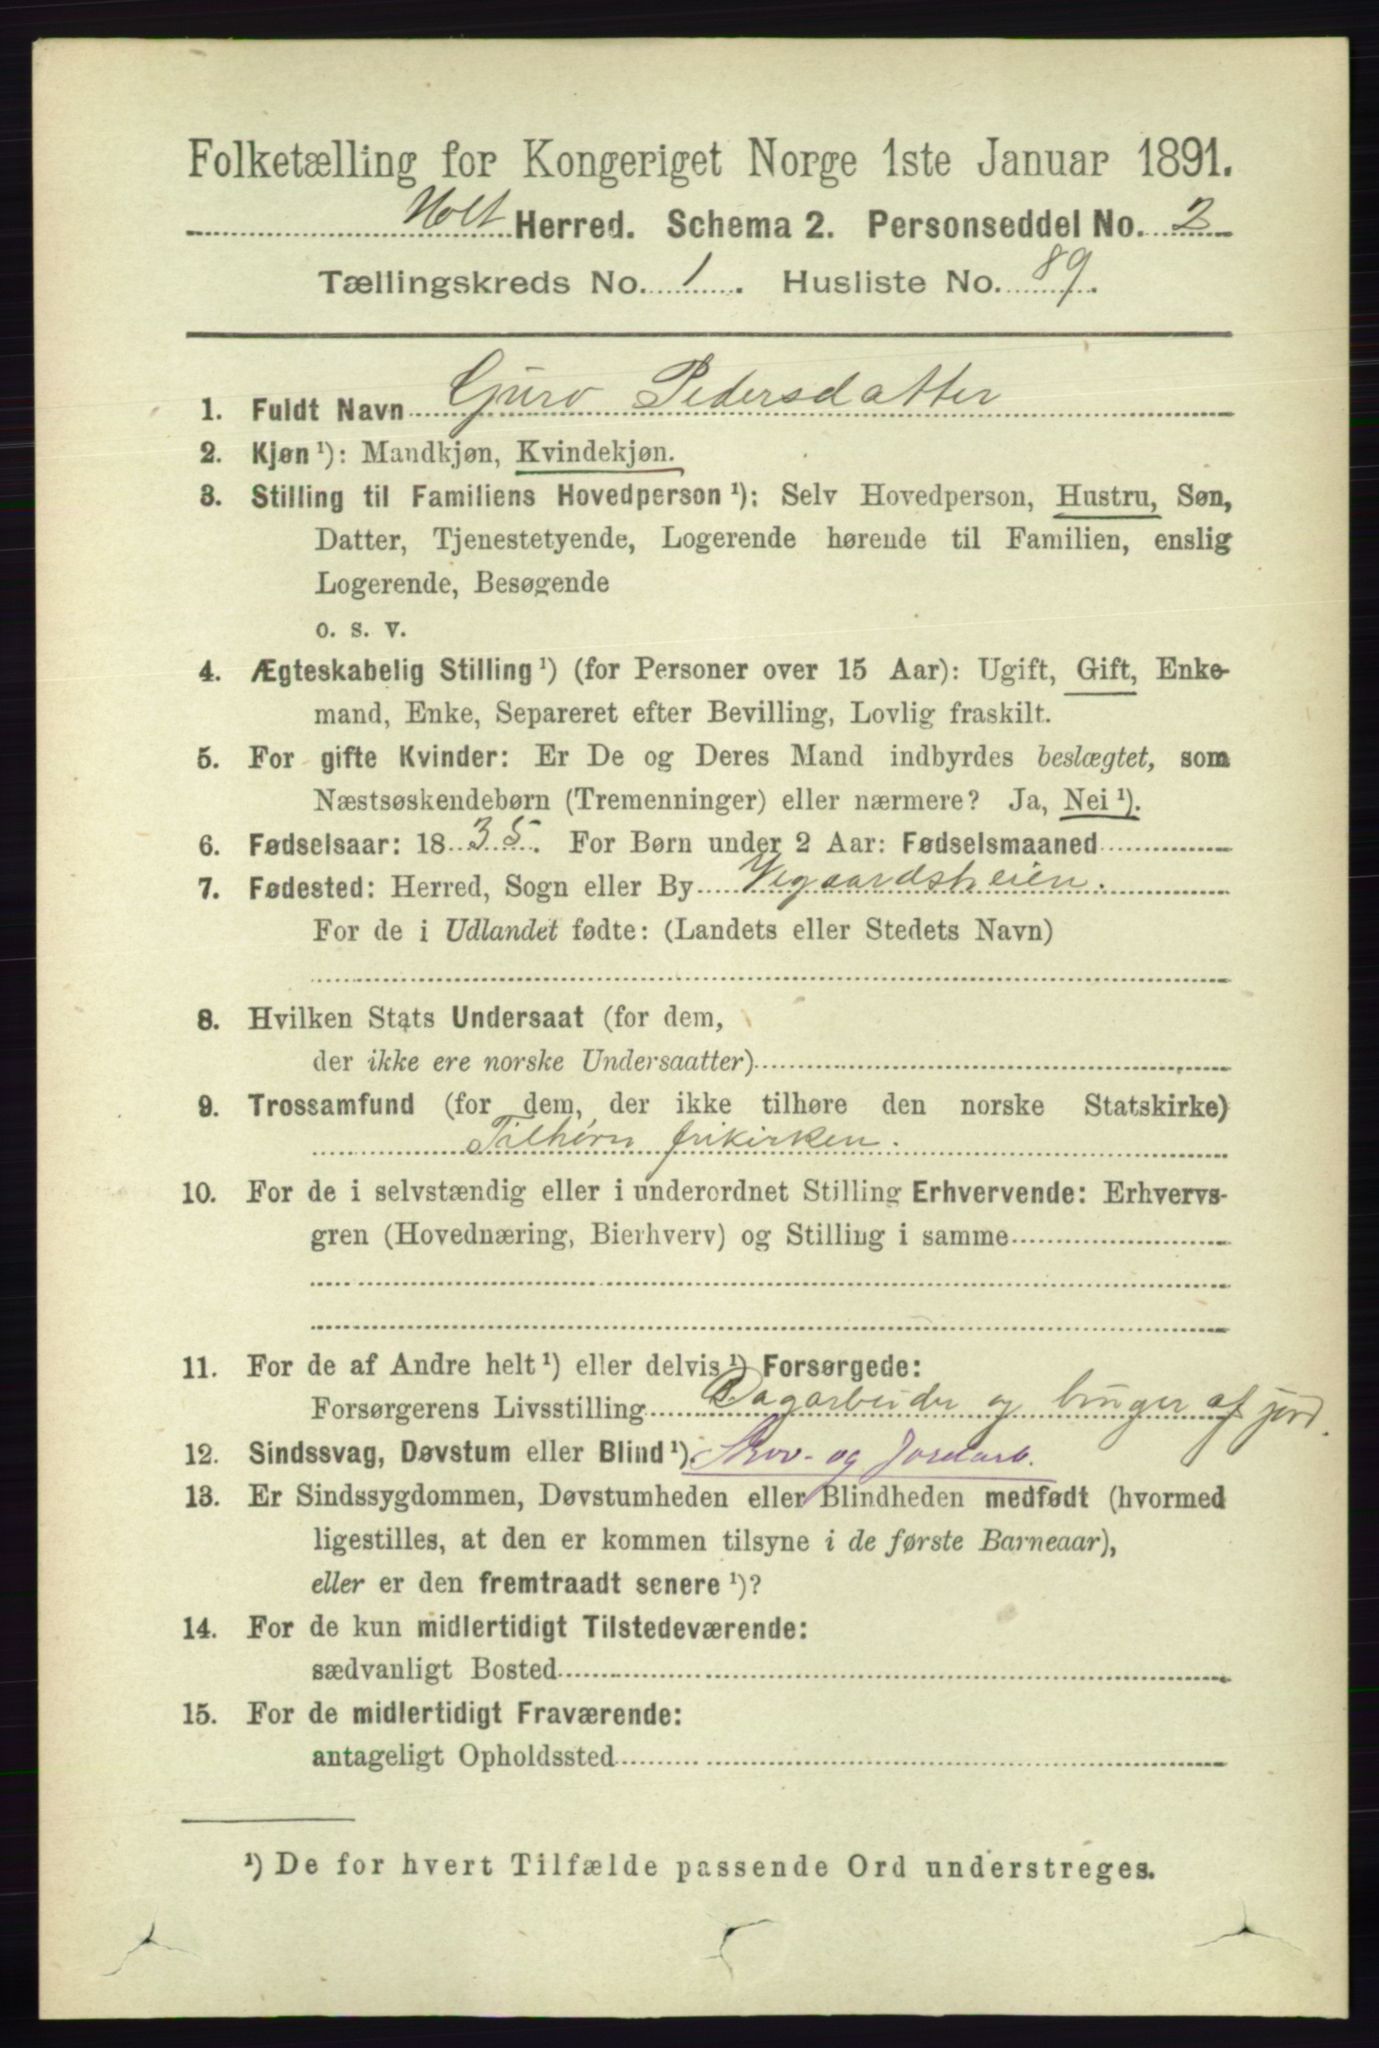 Folketælling for Kongeriget Norge 1ste Januar 1891.
Holt Herred. Schema 2. Personseddel No. 2
Tællingskreds No. 1. Husliste No. 89.
1. Fuldt Navn Guro Pedersdatter
2. Kjøn ¹): Mandkjøn, Kvindekjøn.
3. Stilling til Familiens Hovedperson ¹): Selv Hovedperson, Hustru, Søn,
Datter, Tjenestetyende, Logerende hørende til Familien, enslig
Logerende, Besøgende
o. s. v.
4. Ægteskabelig Stilling ¹) (for Personer over 15 Aar): Ugift, Gift, Enke-
mand, Enke, Separeret efter Bevilling, Lovlig fraskilt.
5. For gifte Kvinder: Er De og Deres Mand indbyrdes beslægtet, som
Næstsøskendebørn (Tremenninger) eller nærmere? Ja, Nei ¹).
6. Fødselsaar: 1835. For Børn under 2 Aar: Fødselsmaaned
7. Fødested: Herred, Sogn eller By Vegaardsheien.
For de i Udlandet fødte: (Landets eller Stedets Navn)
8. Hvilken Stats Undersaat (for dem,
der ikke ere norske Undersaatter)
9. Trossamfund (for dem, der ikke tilhøre den norske Statskirke)
Tilhørn frikirken.
10. For de i selvstændig eller i underordnet Stilling Erhvervende: Erhvervs-
gren (Hovednæring, Bierhverv) og Stilling i samme
11. For de af Andre helt ¹) eller delvis ¹) Forsørgede:
Forsørgerens Livsstilling Dagarbeider og bruger af jord.
12. Sindssvag, Døvstum eller Blind ¹). Skov- og Jordarb.
13. Er Sindssygdommen, Døvstumheden eller Blindheden medfødt (hvormed
ligestilles, at den er kommen tilsyne i de første Barneaar),
eller er den fremtraadt senere ¹)?
14. For de kun midlertidigt Tilstedeværende:
sædvanligt Bosted
15. For de midlertidigt Fraværende:
antageligt Opholdssted
¹) De for hvert Tilfælde passende Ord understreges.